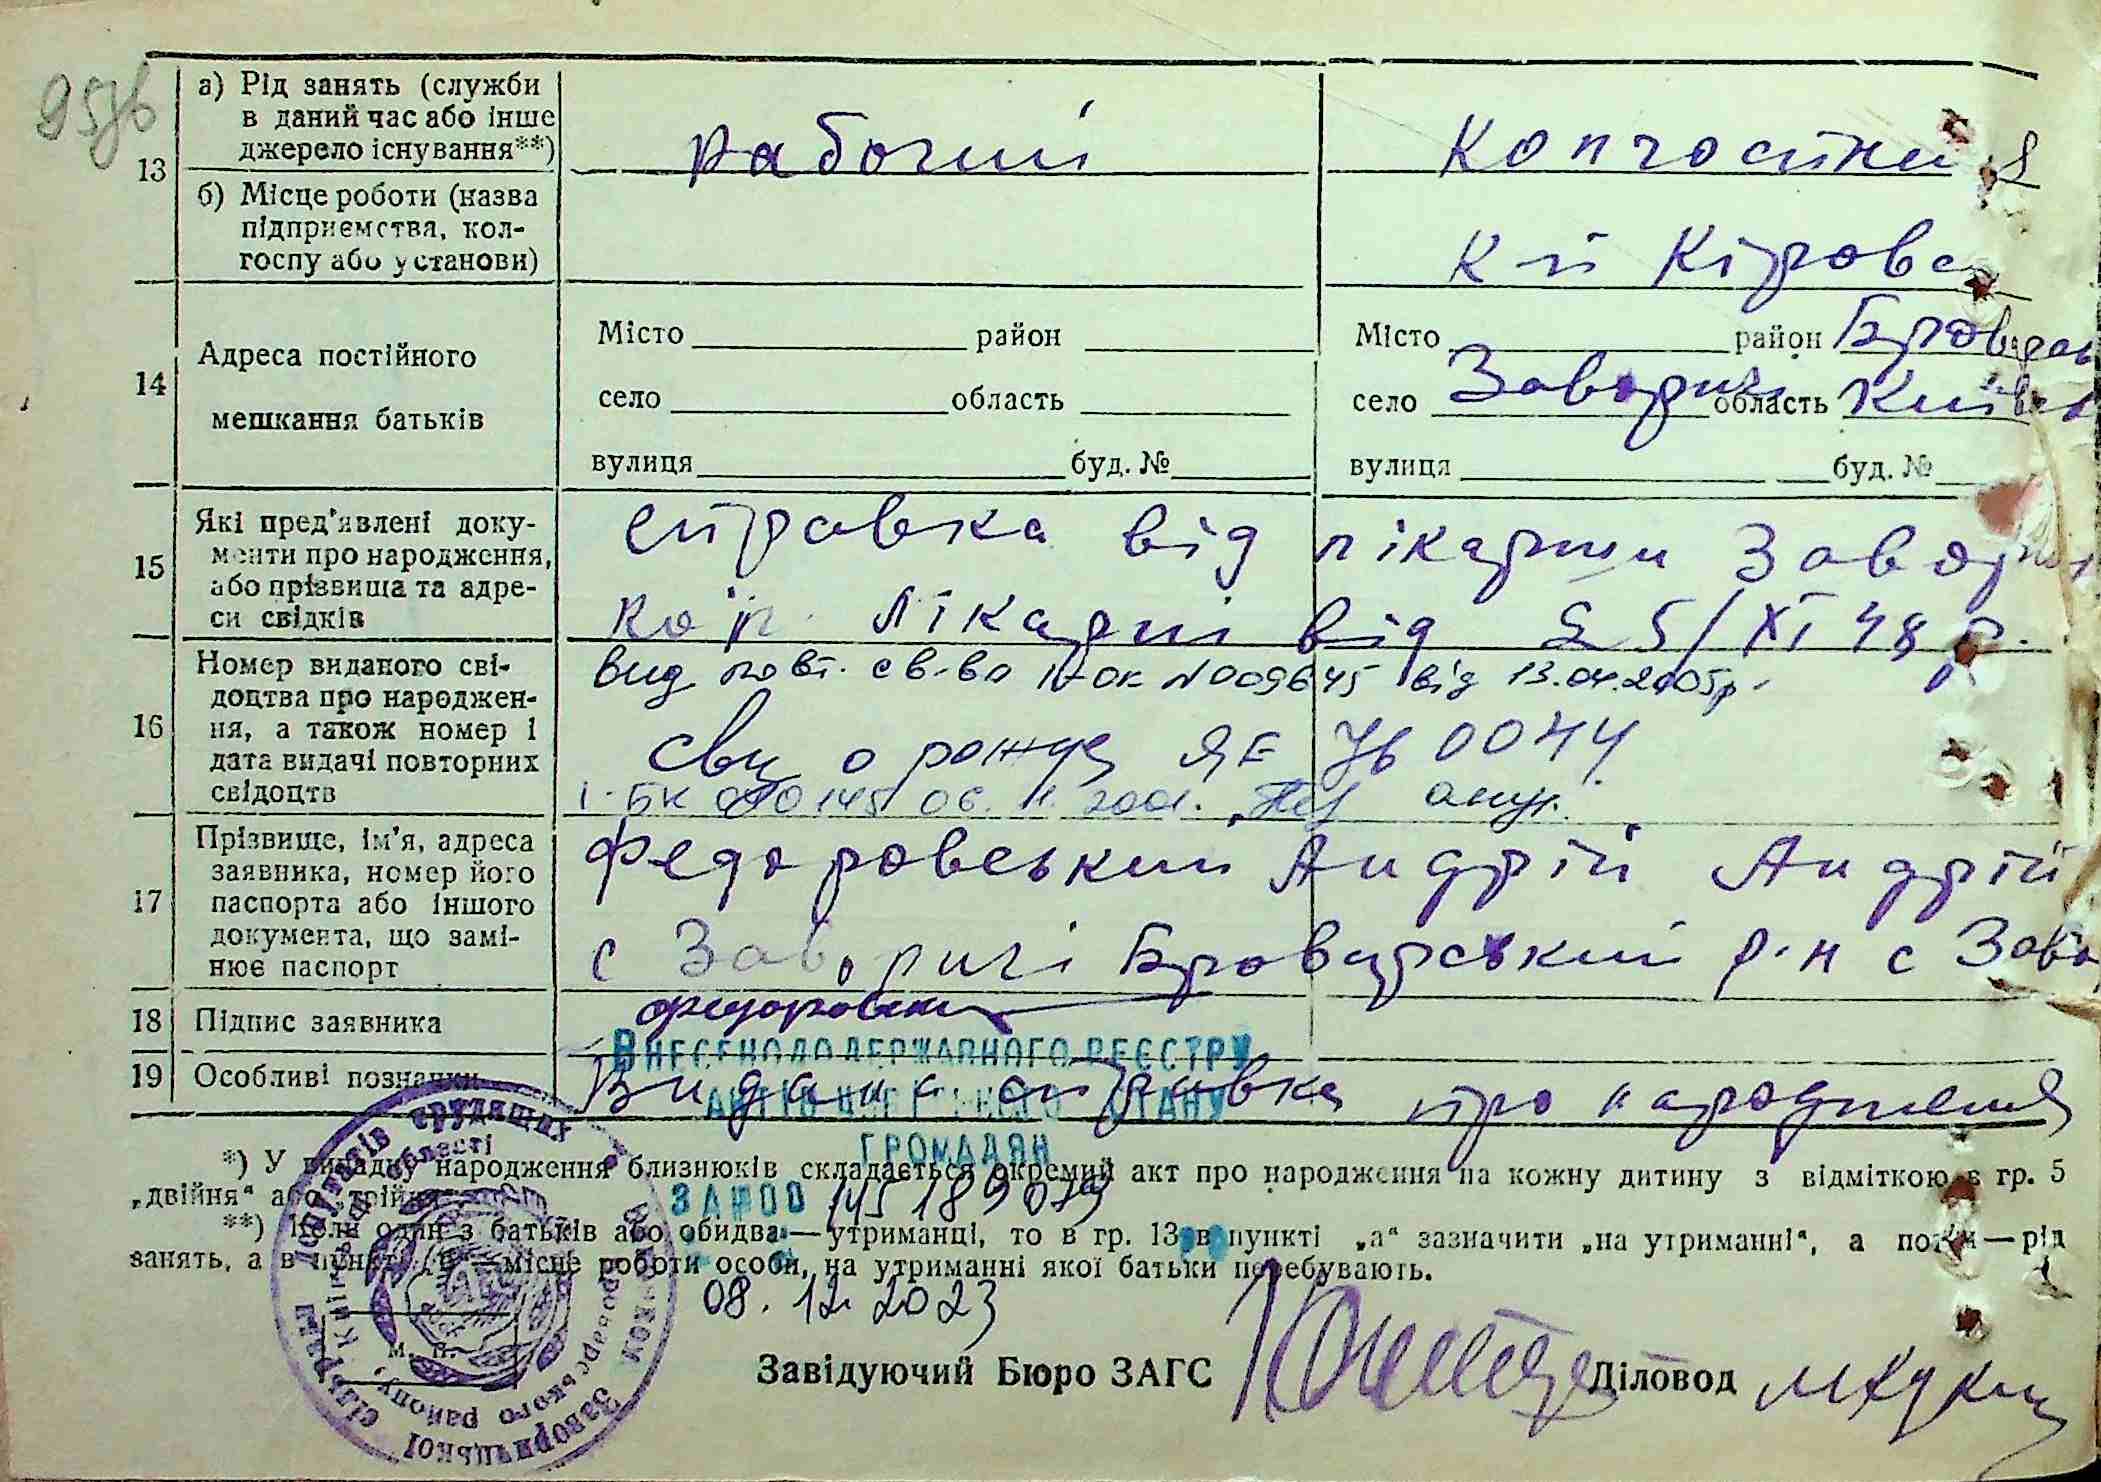 13
а) Рід занять (служби
в даний час або інше
джерело існування**)
рабочий
б) Місце роботи (назва
підприємства, кол-
госпу або установи)
Кірова
14
Адреса постійного
мешкання батьків
Місто район
село область
вулиця буд. №
Місто район
село Заворичі область
вулиця буд. №
15
Які пред'явлені доку-
менти про народження,
або прізвища та адре-
си свідків
справка від лікарні
лікарні від 25/XI 48 р.
16
Номер виданого сві-
доцтва про народжен-
ня, а також номер і
дата видачі повторних
свідоцтв
вид. повт. св-во від 13.04.2005р.
о рожд ЯЕ № 0044
I-БК 06.11.2001.
17
Прізвище, ім'я, адреса
заявника, номер його
паспорта або іншого
документа, що замі-
нює паспорт
Федоровський Андрій Андрій
с Заворичі Броварський р-н с
18
Підпис заявника
19
Особливі позначки
Видана справка про народження
ВНЕСЕНО ДО ДЕРЖАВНОГО РЕЄСТРУ
АКТІВ ЦИВІЛЬНОГО СТАНУ
ГРОМАДЯН
*) У випадку народження близнюків складається окремий акт про народження на кожну дитину з відміткою в гр. 5
„двійня“ або „трійня“
ЗА №00 145189079
**) Коли один з батьків або обидва — утриманці, то в гр. 13 в пункті „а“ зазначити „на утриманні“, а потім — рід
занять, а в пункті „б“ — місце роботи особи, на утриманні якої батьки перебувають.
08.12.2023
м. п.
Завідуючий Бюро ЗАГС Діловод